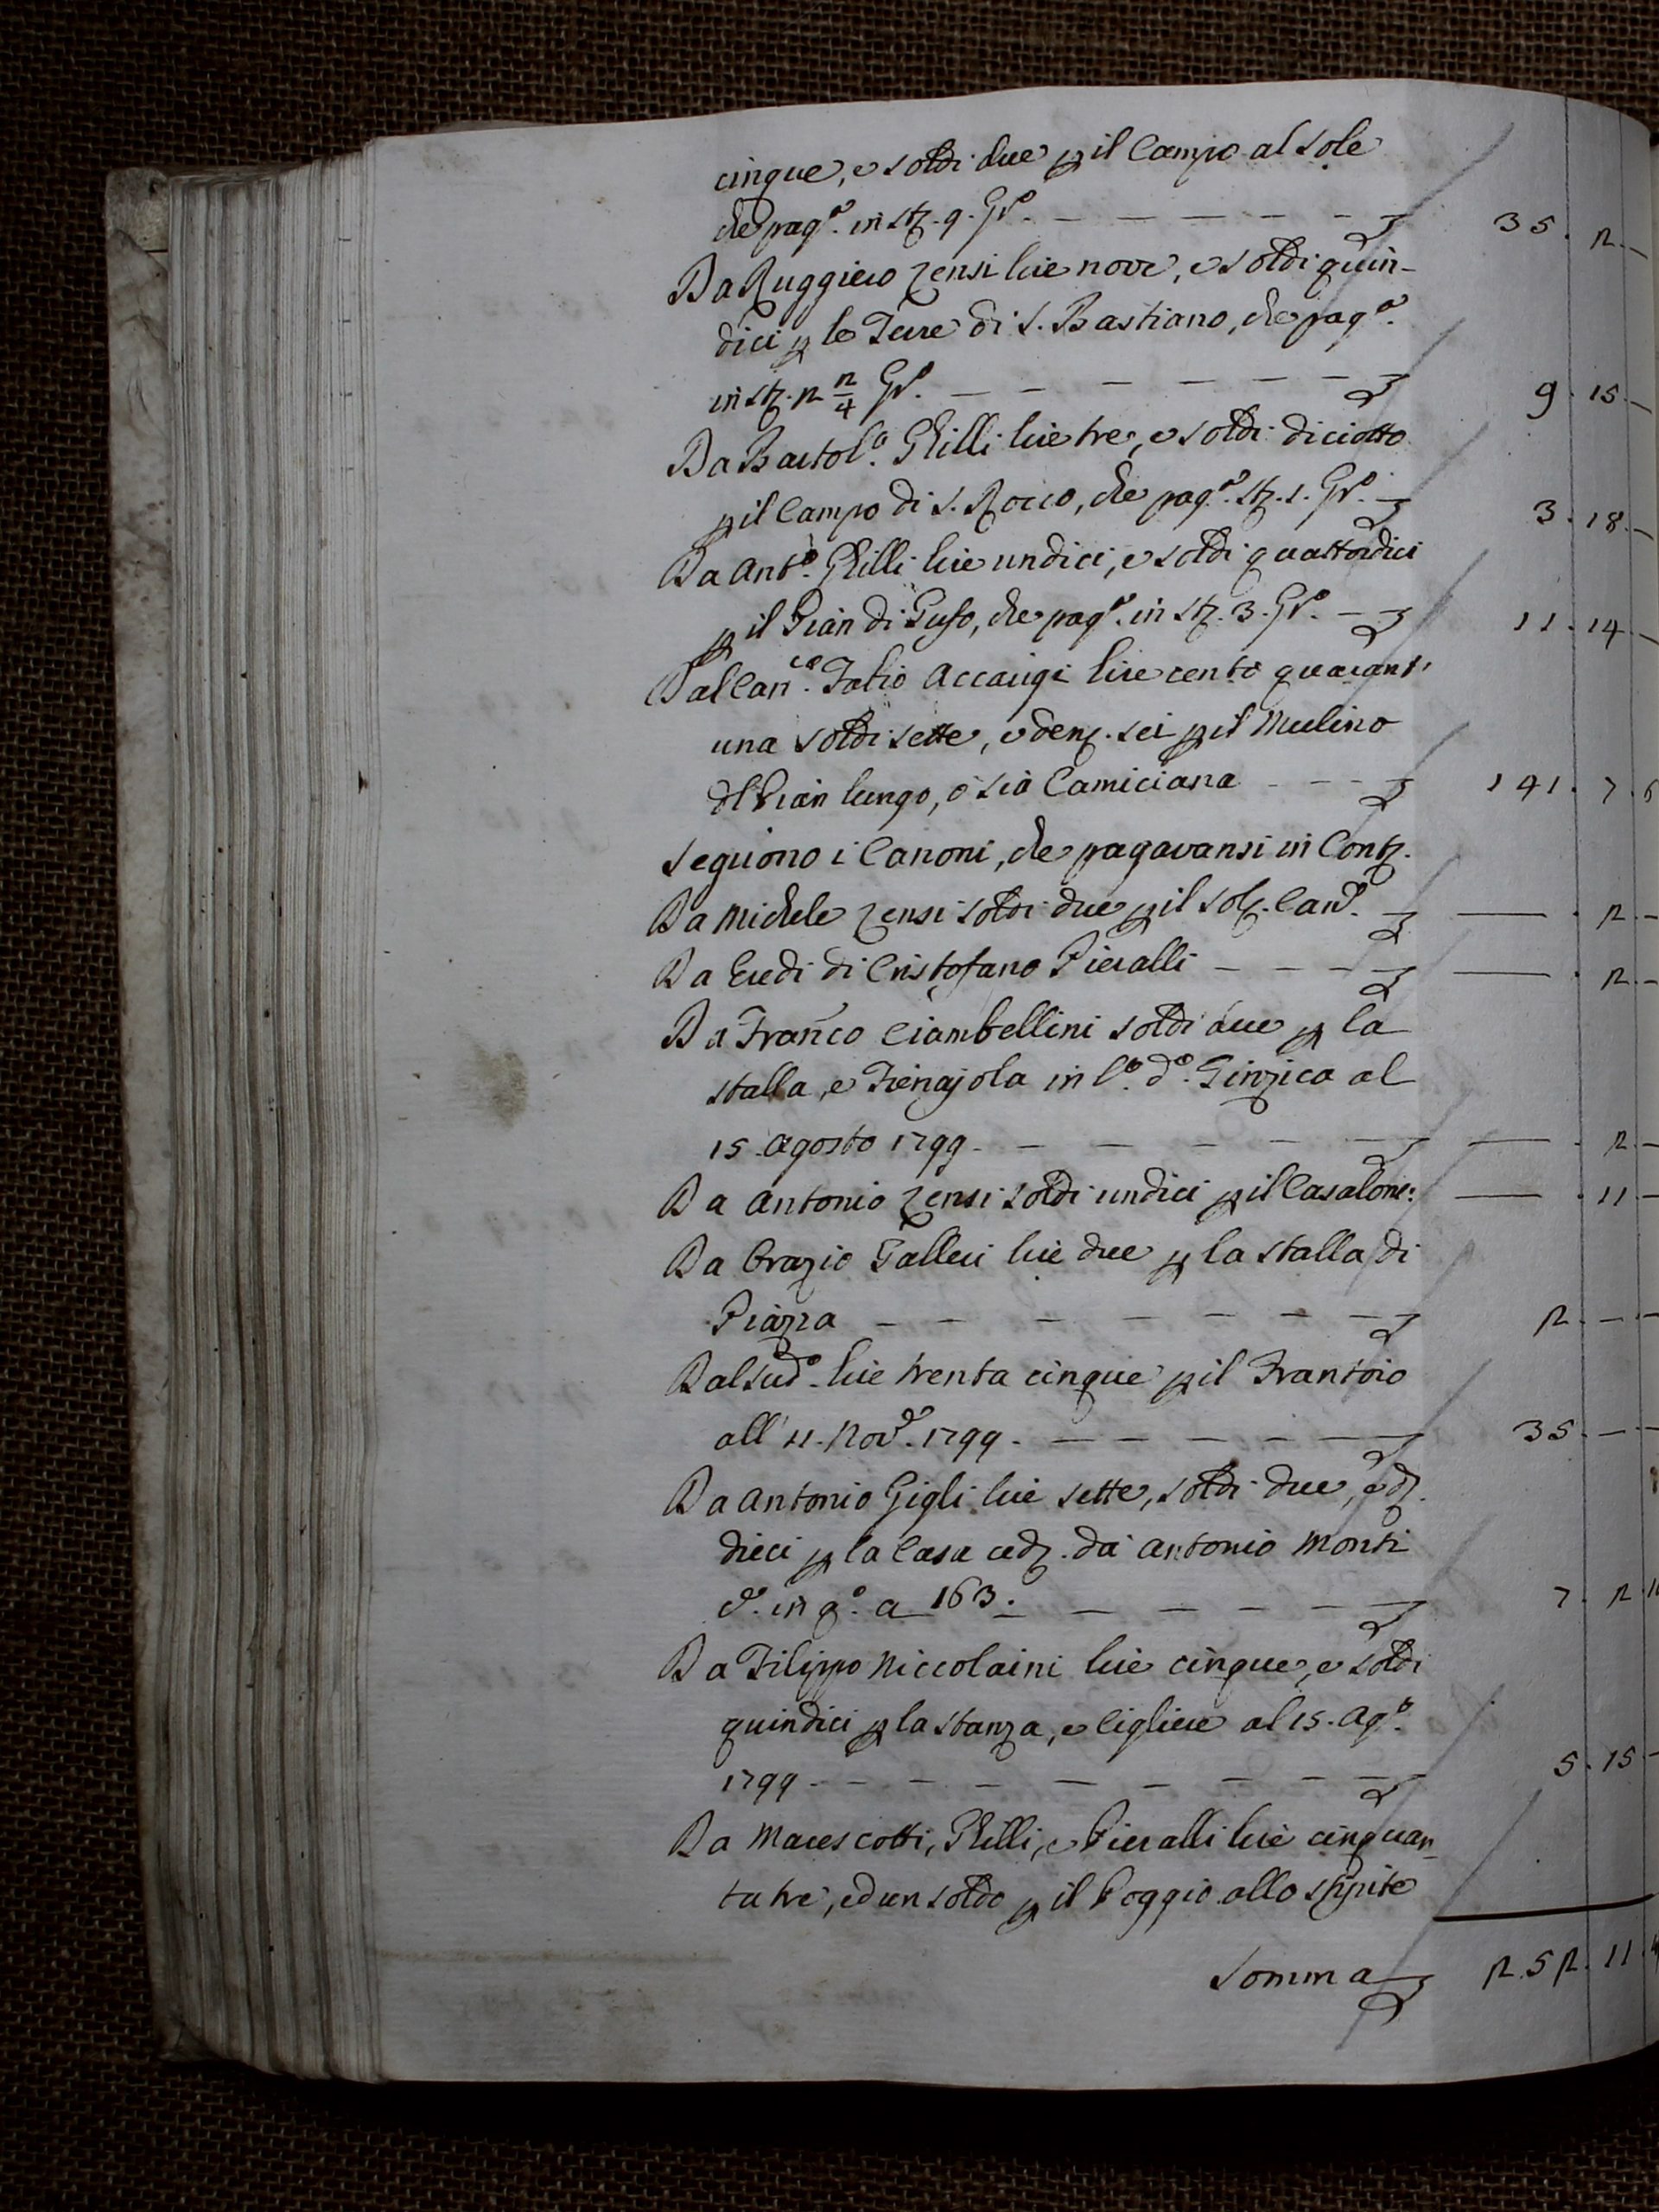 cinque, e soldi due p il Campo al sole
che pag.o in st. 9. Gr.o — — — — — — 35. 2. —
Da Ruggiero Zensi lire nove, e soldi quin-
dici p le Terre di S. Bastiano, che pag.o
in st. 2 2/4 Gr.o — — — — — — 9. 15. —
Da Bartol.o Ghilli lire tre, e soldi diciotto
p il Campo di S. Rocco, che pag.o st. 1. Gr.o — 3. 18. —
Da Ant.o Ghilli lire undici, e soldi quattordici
p il Pian di Gufo, che pag.o in st. 3. Gr.o — — 11. 14. —
Dal Can.co Fabio Accarigi lire cento quarant'
una soldi sette, e den. sei p il Mulino
dl Pian lungo, o sia Camiciana — — — 141. 7. 6
Seguono i Canoni, che pagavansi in Cont.
Da Michele Zensi soldi due p il sol. Can.e — — . 2. —
Da Eredi di Cristofano Pieralli — — — — — . 2. —
Da Franco Ciambellini soldi due p la
stalla, e Fienajola in l.o d.o Ginzica al
15. Agosto 1799. — — — — — — — . 2. —
Da Antonio Zensi soldi undici p il Casalone: — . 11 —
Da Orazio Galleri lire due p la stalla di
Piazza — — — — — — — 2. — —
Dal Sud.o lire trenta cinque p il Frantoio
all' 11. Nov.e 1799. — — — — — — 35. — —
Da Antonio Gigli lire sette, soldi due, e d.
dieci p la Casa ced. da Antonio Monti
d.o in q.o a 163. — — — — — — 7. 2. 10
Da Filippo Niccolaini lire cinque, e soldi
quindici p la stanza, e Cigliere al 15. Ag.o
1799 — — — — — — — — 5. 15 —
Da Marescotti, Ghilli, e Pieralli lire cinquan-
tatre, ed un soldo p il Poggio allo spirito
Somma 252. 11.